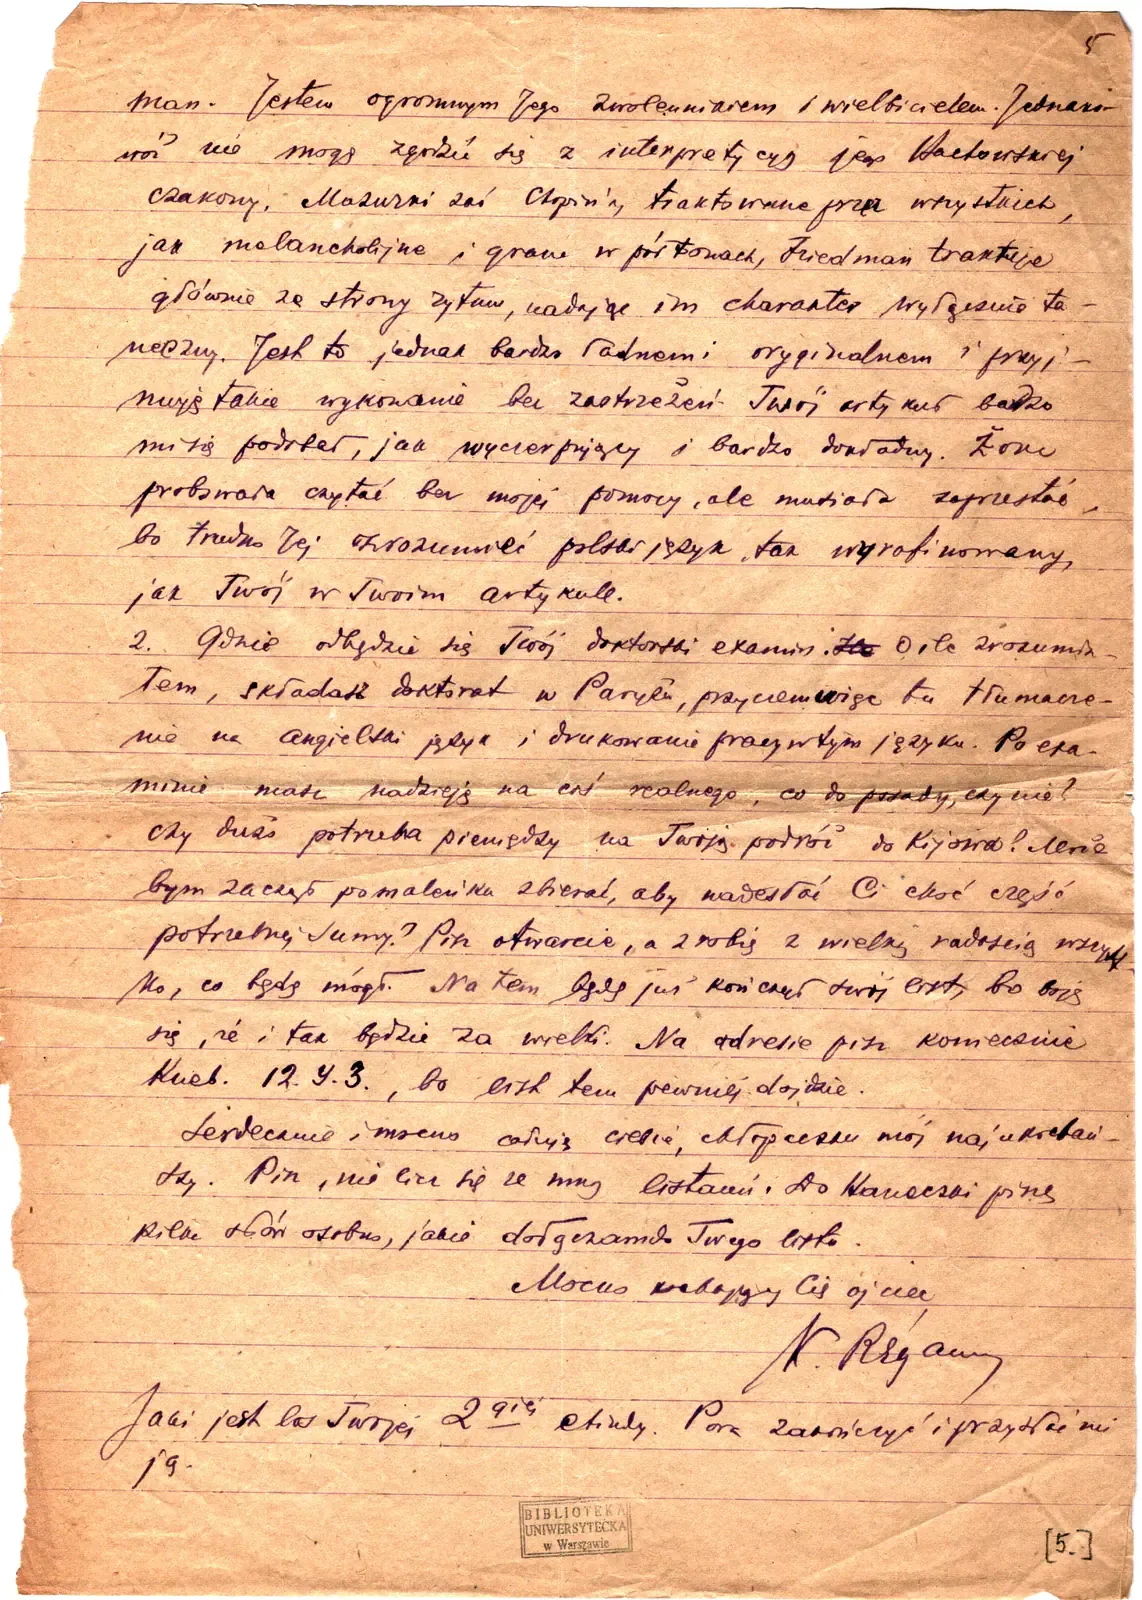 5
man. Jestem ogromnym Jego zwolennikiem i wielbicielem. Jednako-
woż nie mogę zgodzić się z interpretycyą jego Bachowskiej
czakony. Mazurki zaś Chopin'a, traktowane przez wszystkich,
jak melancholijne i grane w półtonach, Friedman traktuje
głównie ze strony rytmu, nadając im charakter wyłącznie ta-
neczny. Jest to jednak bardzo ładnem i oryginalnem i przyj-
muję takie wykonanie bez zastrzeżeń. Twój artykuł bardzo
mi się podobał, jak wyczerpujący i bardzo dokładny. Żona
probowała czytać bez mojej pomocy, ale musiała zaprzestać,
bo trudno Jej zrozumieć polski język, tak wyrafinowany,
jak Twój w Twoim artykule.
2. Gdzie odbędzie się Twój doktorski examin. O ile zrozumia-
łem, składasz doktorat w Paryżu, przyczem więc tu tłumacze-
nie na angielski język i drukowanie pracy w tym języku. Po exa-
minie masz nadzieję na coś realnego, co do posady, czy nie?
Czy dużo potrzeba pieniędzy na Twoją podróż do Kijowa? Może
bym zaczął pomaleńku zbierać, aby nadesłać Ci choć część
potrzebnej sumy? Pisz otwarcie, a zrobię z wielką radością wszyst-
ko, co będę mógł. Na tem będę już kończył swój list, bo boję
się, że i tak będzie za wielki. Na adresie pisz koniecznie
Kueb. 12. y. 3., bo list tem pewniej dojdzie.
Serdecznie i mocno całuję ciebie, chłopczyku mój najukochań-
szy. Pisz, nie licz się ze mną listami. Do Haneczki piszę
kilka słów osobno, jakie dołączam do Twego listu.
Mocno kochający Cię ojciec
K. Régamey
Jaki jest los Twojej 2giej etiudy. Pora zakończyć i przysłać mi
ją.
BIBLIOTEKA
UNIWERSYTECKA
w Warszawie
[5.]